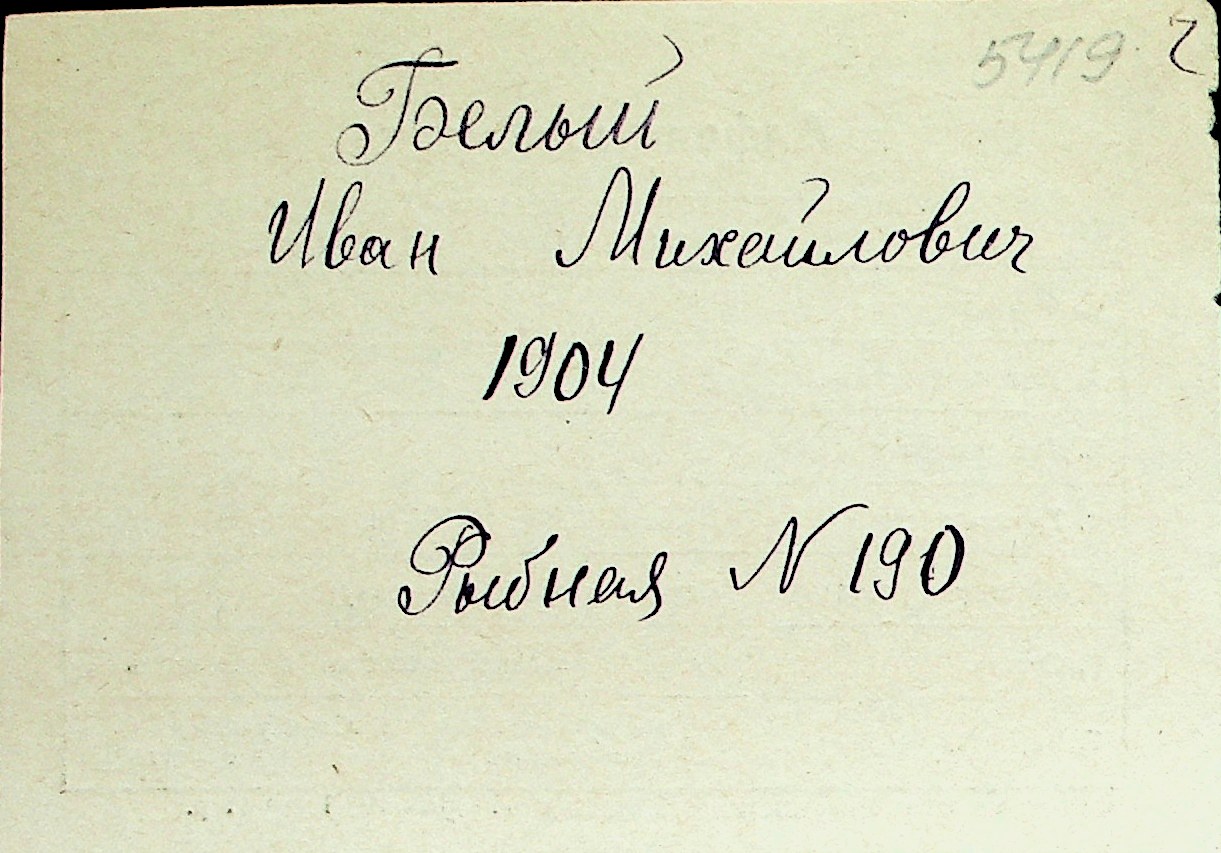 5419.
Белый
Иван Михайлович
1904
Рыбная N 190